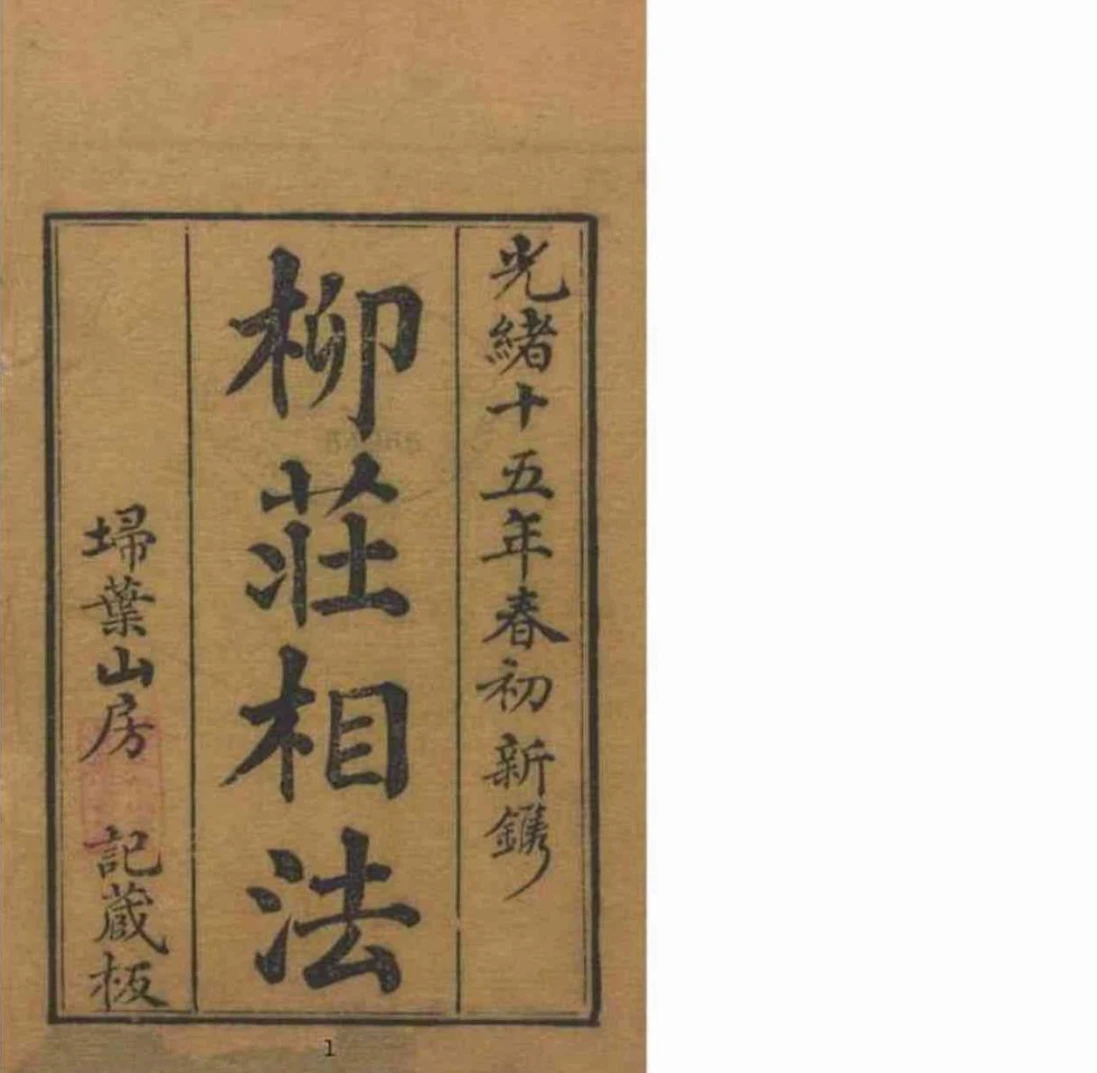 光緒十五年春初新鐫
柳莊相法
埽葉山房記蔵板
1